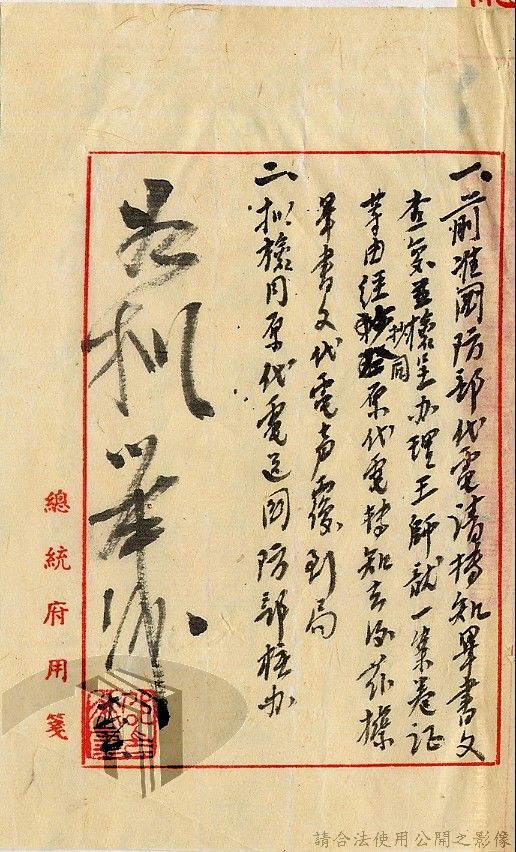 一、前准國防部代電請轉知畢書文
查案並檢呈办理王師龍一案卷証
等由經抄同原代電轉知去後茲據
畢書文代電声復到局
二、拟檢同原代電送國防部核办
如拟
總統府用箋
請合法使用公開之影像